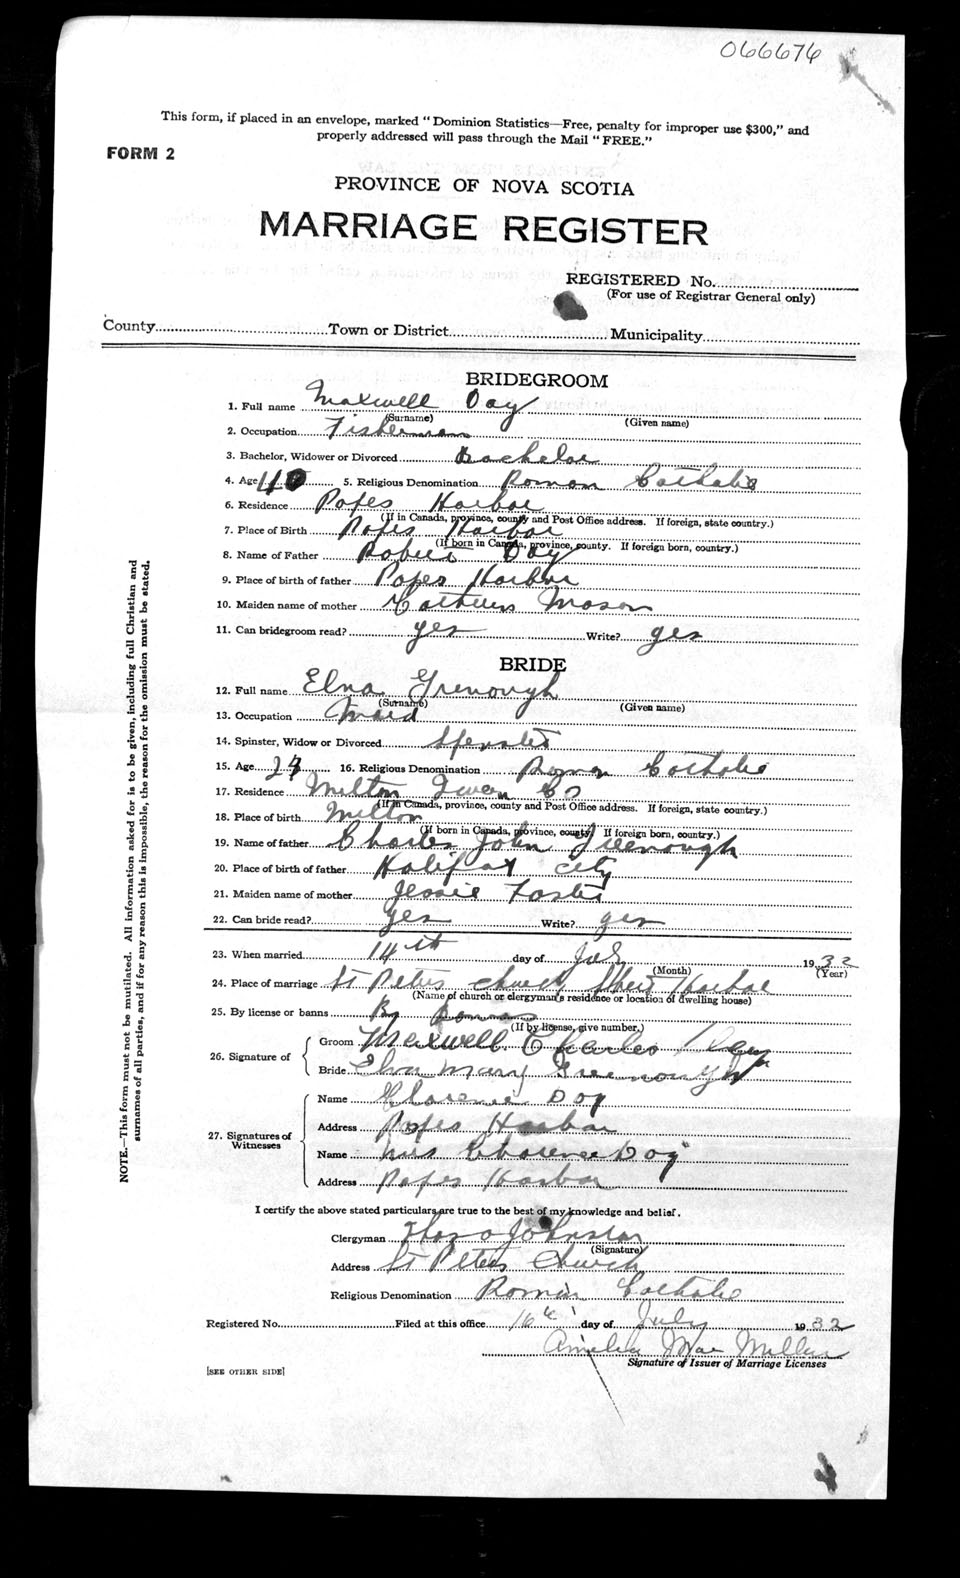 066676
This form, if placed in an envelope, marked "Dominion Statistics—Free, penalty for improper use $300," and
properly addressed will pass through the Mail "FREE."
FORM 2
PROVINCE OF NOVA SCOTIA
MARRIAGE REGISTER
REGISTERED No.
(For use of Registrar General only)
County Town or District Municipality
BRIDEGROOM
1. Full name Maxwell Day
(Surname) (Given name)
2. Occupation Fisherman
3. Bachelor, Widower or Divorced Bachelor
4. Age 40 5. Religious Denomination Roman Catholic
6. Residence Popes Harbor
(If in Canada, province, county and Post Office address. If foreign, state country.)
7. Place of Birth Popes Harbor
(If born in Canada, province, county. If foreign born, country.)
8. Name of Father Robert Day
9. Place of birth of father Popes Harbor
10. Maiden name of mother Mason
11. Can bridegroom read? yes Write? yes
BRIDE
12. Full name Elna Grenough
(Surname) (Given name)
13. Occupation Maid
14. Spinster, Widow or Divorced Spenster
15. Age 16. Religious Denomination Roman Catholic
17. Residence Milton Co
(If in Canada, province, county and Post Office address. If foreign, state country.)
18. Place of birth Milton
(If born in Canada, province, county. If foreign born, country.)
19. Name of father Charles John Greenough
20. Place of birth of father Halifax city
21. Maiden name of mother Jessie Foster
22. Can bride read? yes Write? yes
23. When married 14th day of July 1932
(Month) (Year)
24. Place of marriage St Peters church Harbor
(Name of church or clergyman's residence or location of dwelling house)
25. By license or banns By
(If by license, give number.)
26. Signature of
Groom Maxwell Charles Day
Bride Mary Greenough
27. Signatures of Witnesses
Name Clarence Day
Address Popes Harbor
Name Mrs Clarence Day
Address Popes Harbor
I certify the above stated particulars are true to the best of my knowledge and belief.
Clergyman Johnston
(Signature)
Address St Peters Church
Religious Denomination Roman Catholic
Registered No. Filed at this office 16th day of July 1932
Amelia Mae
Signature of Issuer of Marriage Licenses
[SEE OTHER SIDE]
NOTE.—This form must not be mutilated. All information asked for is to be given, including full Christian and
surnames of all parties, and if for any reason this is impossible, the reason for the omission must be stated.